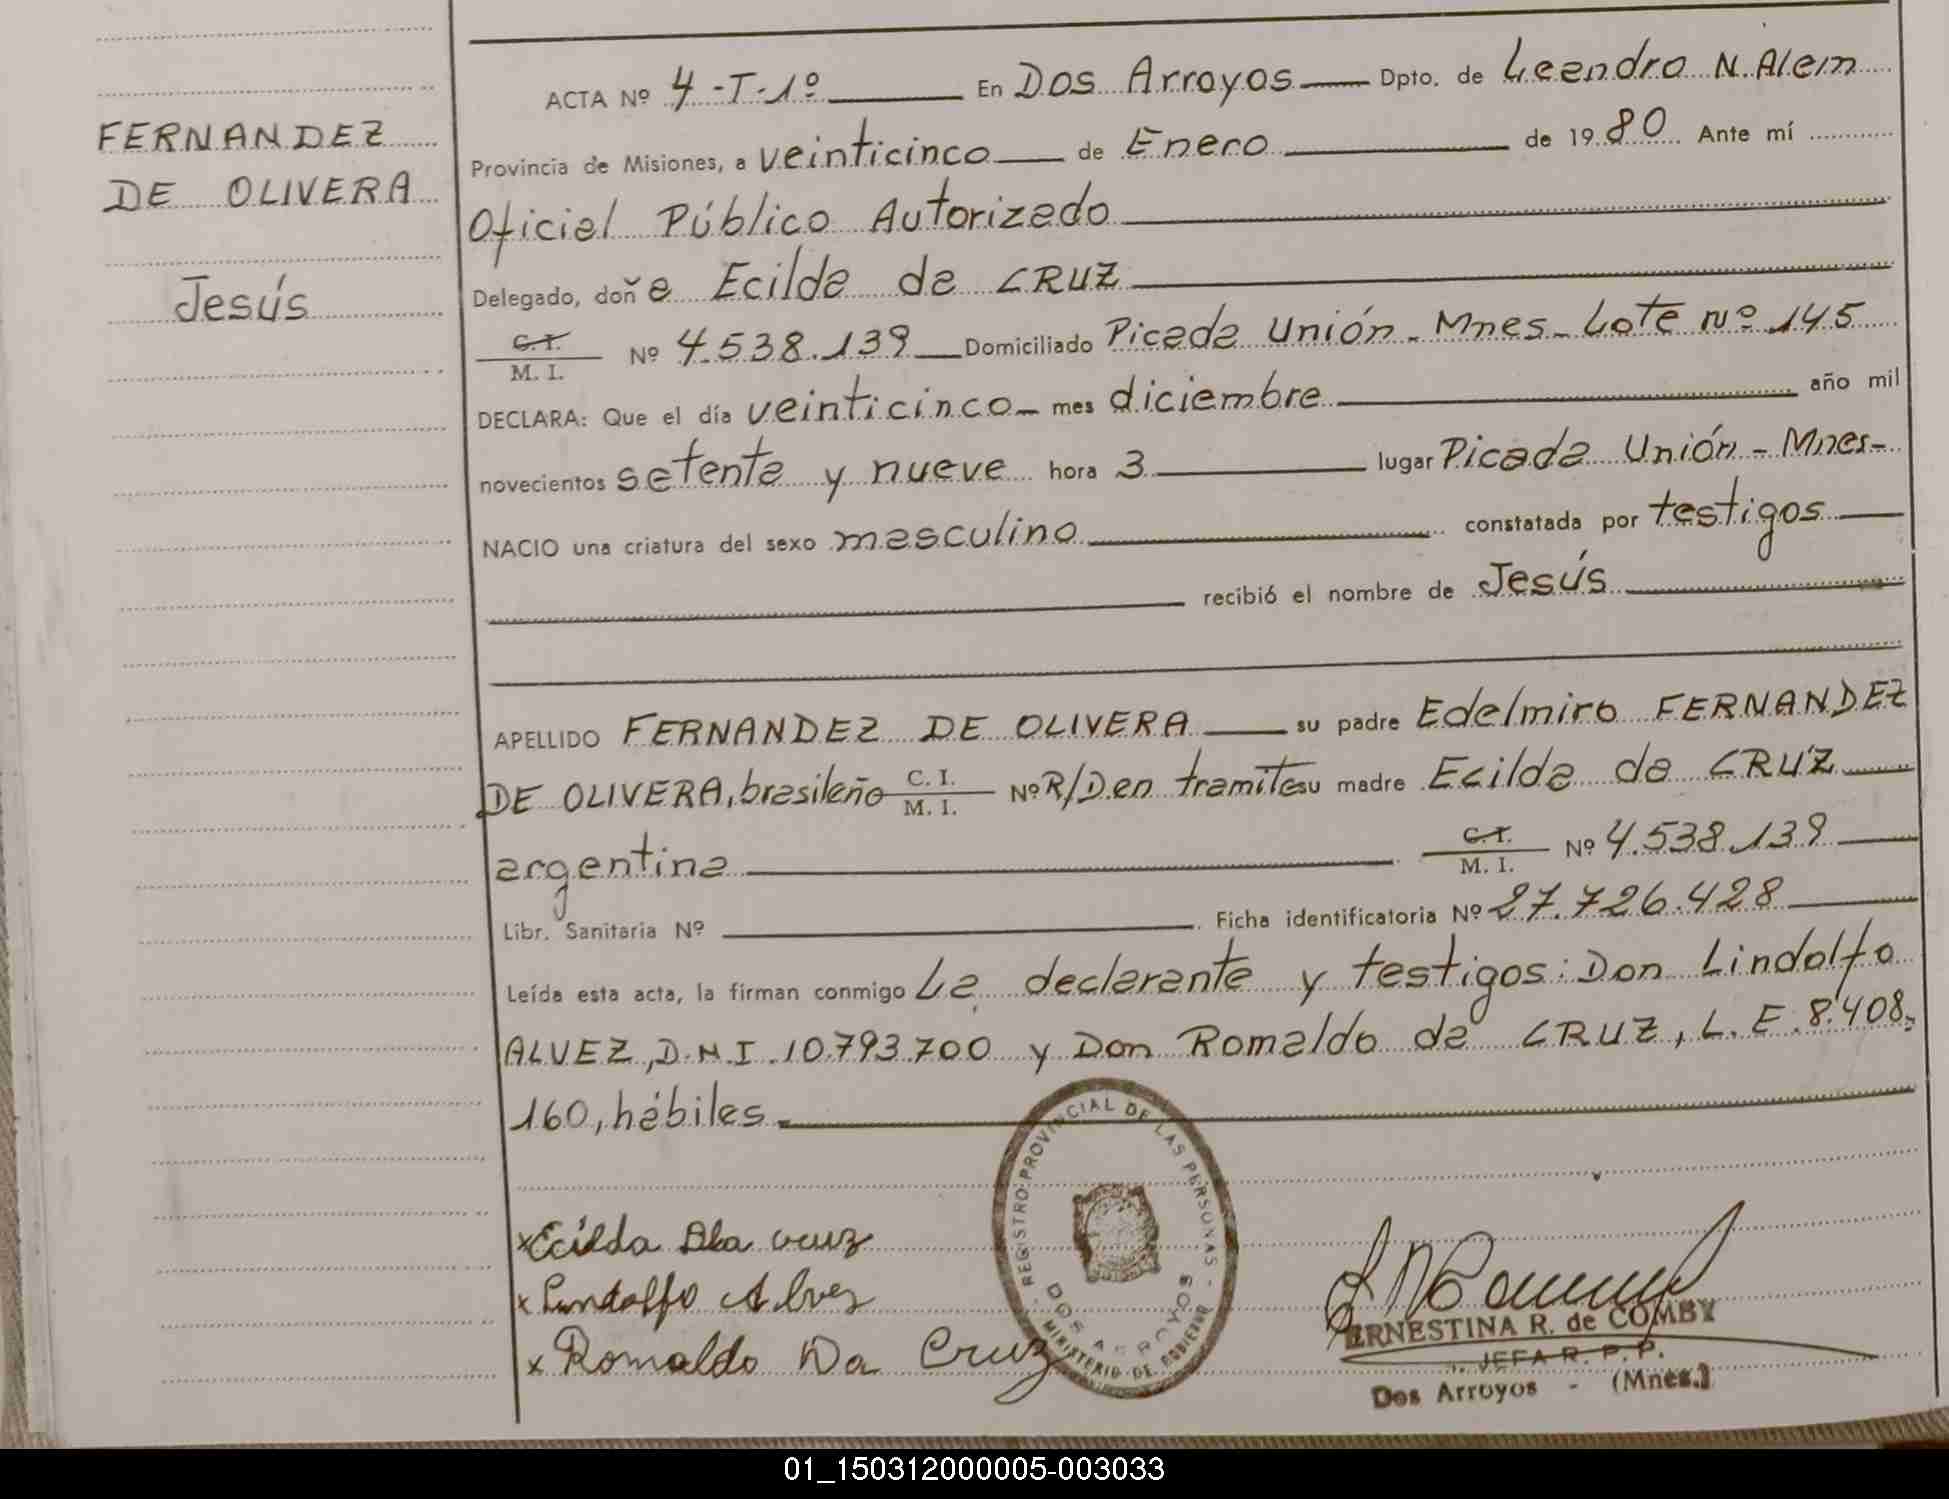 FERNANDEZ
DE OLIVERA
Jesús
ACTA Nº 4-T-1º En Dos Arroyos Dpto. de Leandro N. Alem
Provincia de Misiones, a veinticinco de Enero de 1980 Ante mí
Oficial Público Autorizado
Delegado, doña Ecilda da CRUZ
C.I.
M. I. Nº 4.538.139 Domiciliado Picada Unión - Mnes - Lote Nº 145
DECLARA: Que el día veinticinco mes diciembre año mil
novecientos setenta y nueve hora 3 lugar Picada Unión - Mnes-
NACIO una criatura del sexo masculino constatada por testigos
recibió el nombre de Jesús
APELLIDO FERNANDEZ DE OLIVERA su padre Edelmiro FERNANDEZ
DE OLIVERA, brasileño C. I. / M. I. Nº R/D en tramite su madre Ecilda da CRUZ
argentina C.I. / M. I. Nº 4.538.139
Libr. Sanitaria Nº Ficha identificatoria Nº 27.726.428
Leída esta acta, la firman conmigo La declarante y testigos: Don Lindolfo
ALVEZ, D.N.I. 10.793.700 y Don Romaldo da CRUZ, L.E. 8.408.
160, hábiles
x Ecilda Da cruz
x Lindolfo Alvez
x Romaldo Da Cruz
REGISTRO PROVINCIAL DE LAS PERSONAS
DOS ARROYOS
MINISTERIO DE GOBIERNO
ERNESTINA R. de COMBY
JEFA R. P. P.
Dos Arroyos - (Mnes.)
01_150312000005-003033